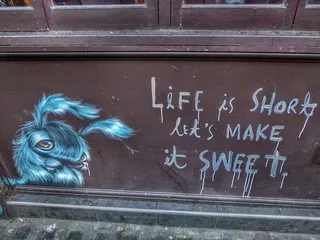 LiFE is SHORt
let's MAKE
it SWEEt.